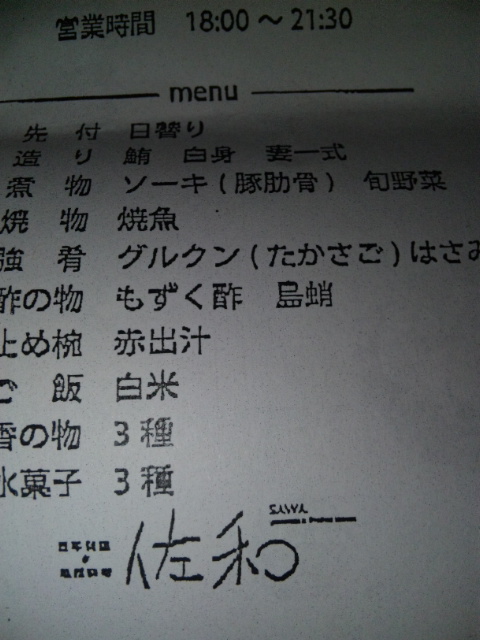 営業時間 18:00～21:30
menu
先 付 日替り
造 り 鮪 白身 妻一式
煮 物 ソーキ(豚肋骨) 旬野菜
焼 物 焼魚
強 肴 グルクン(たかさご)はさみ
酢の物 もずく酢 島蛸
止め椀 赤出汁
ご 飯 白米
香の物 3種
水菓子 3種
佐和